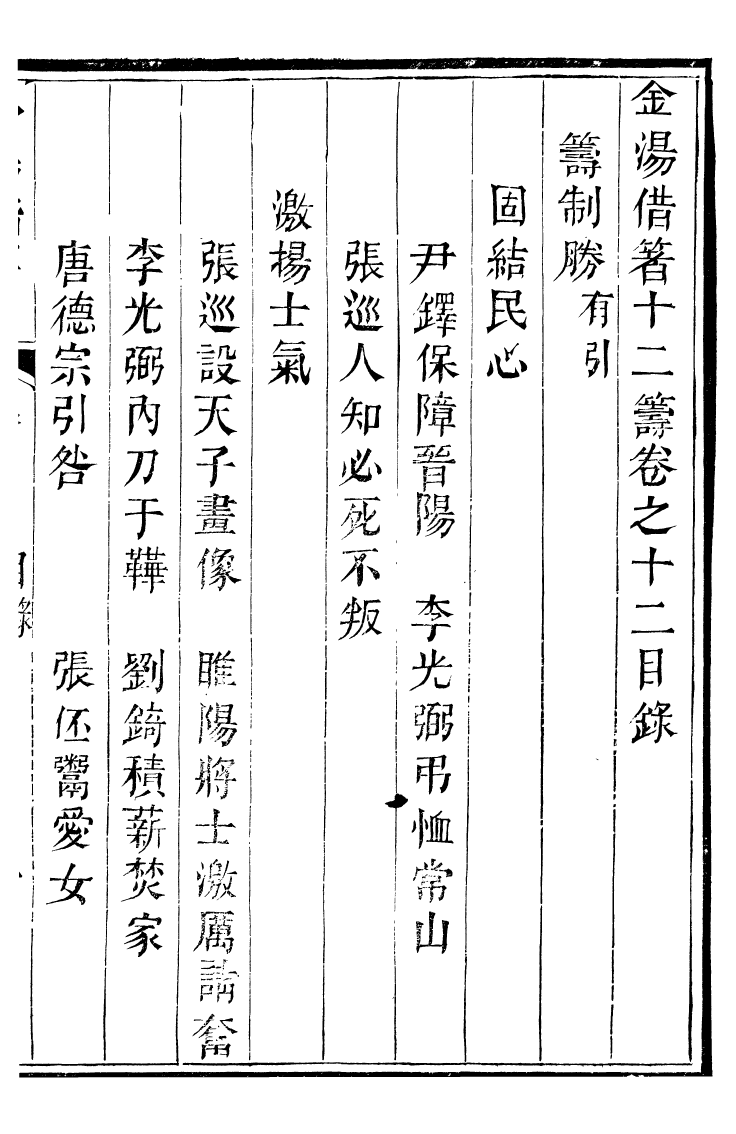 金湯借箸十二籌卷之十二目錄
籌制勝有引
固結民心
尹鐸保障晉陽 李光弼弔恤常山
張巡人知必死不叛
激揚士氣
張巡設天子畫像 睢陽將士激厲請奮
李光弼內刀于鞾 劉錡積薪焚家
唐德宗引咎 張伾鬻愛女
目錄